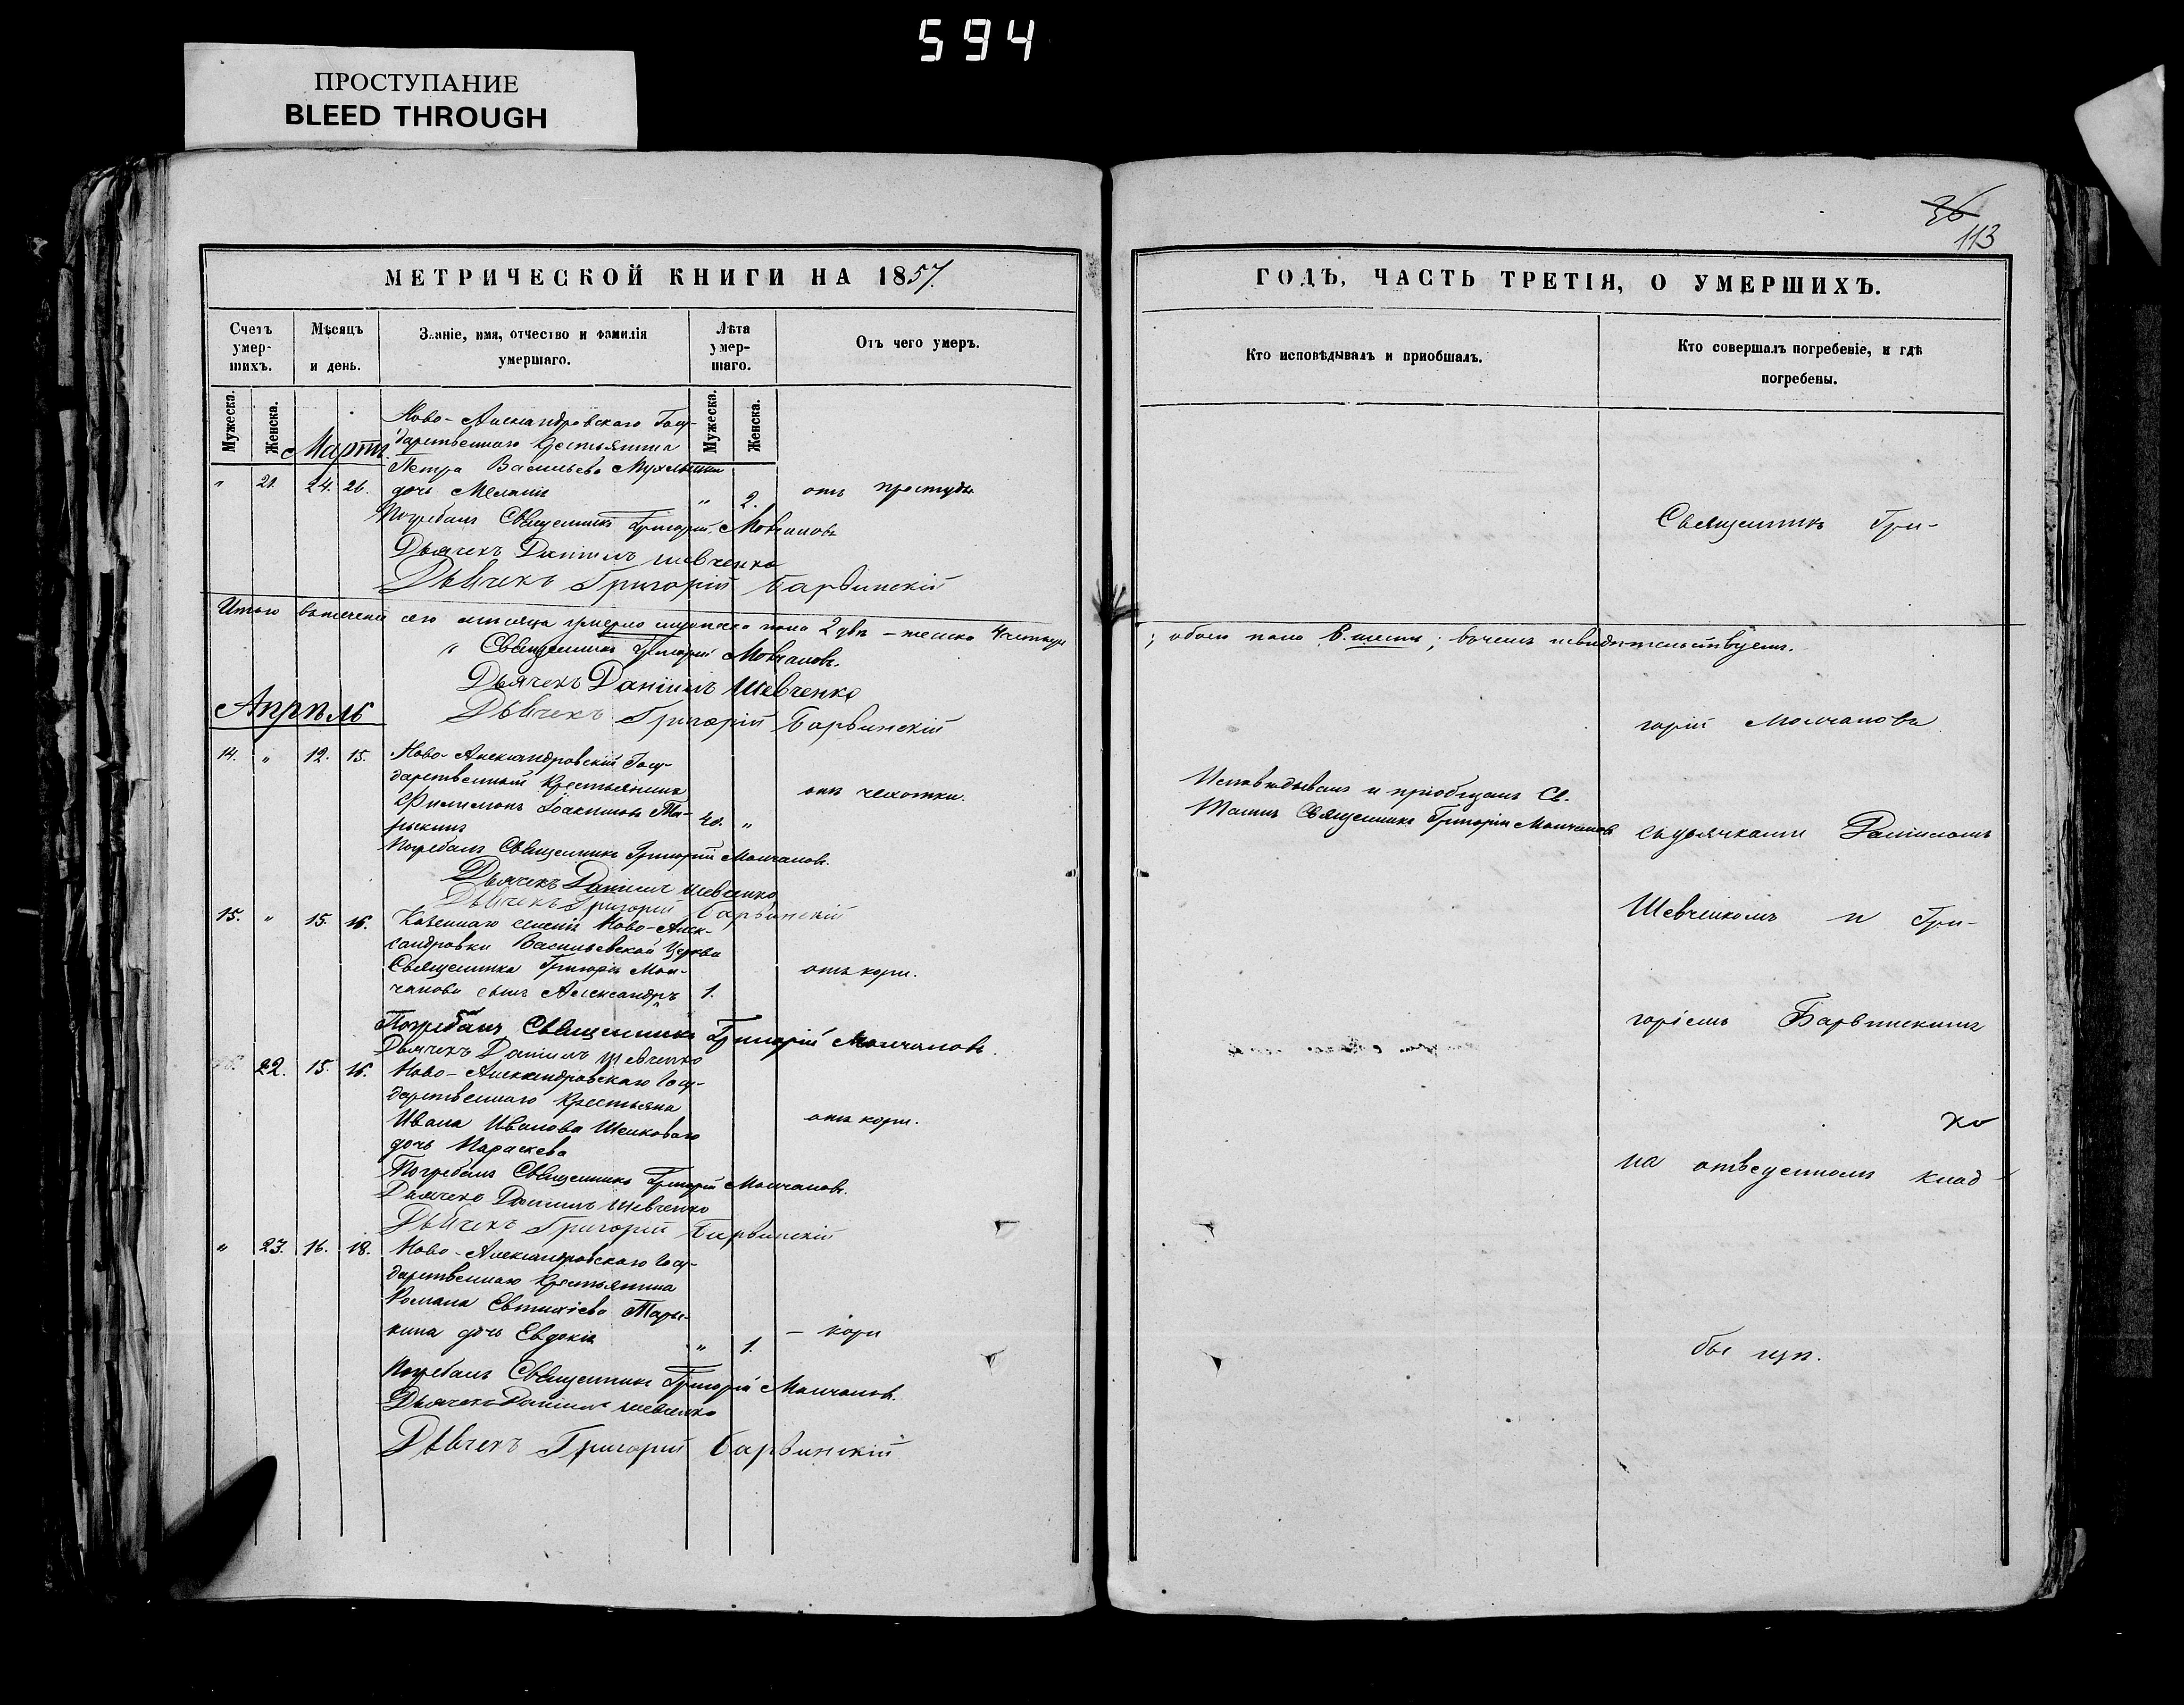 594
ПРОСТУПАНИЕ
BLEED THROUGH
36
113
МЕТРИЧЕСКОЙ КНИГИ НА 1857.
Счетъ умер-шихъ.
Мѣсяцъ и день.
Званіе, имя, отчество и фамилія умершаго.
Лѣта умер-шаго.
Отъ чего умеръ.
Мужеска.
Женска.
Мужеска.
Женска.
Мартъ
Ново-Александровскаго Госу-
дарственнаго Крестьянина
Петра Васильева
" 21. 24. 26. дочь Меланія " 2. отъ простуды
Погребалъ Священникъ Григорій Молчановъ
Дьячекъ Даніилъ Шевченко
Дьячекъ Григорій Барвинскій
Итого втеченіи сего мѣсяца умерло мужеска пола 2 два – женска 4 четыре
" Священникъ Григорій Молчановъ.
Дьячекъ Даніилъ Шевченко
Дьячекъ Григорій Барвинскій
Апрѣль
14. " 12. 15. Ново-Александровскій Госу-
дарственный Крестьянинъ
Филимонъ Іоакимовъ Та-
рыкинъ 40. " отъ чахотки.
Погребалъ Священникъ Григорій Молчановъ.
Дьячекъ Даніилъ Шевченко
Дьячекъ Григорій Барвинскій
15. " 15. 16. Казеннаго селенія Ново-Алек-
сандровки Васильевской Церкви
Священника Григорія Мол-
чанова сынъ Александръ 1. отъ кори.
Погребалъ Священникъ Григорій Молчановъ.
Дьячекъ Даніилъ Шевченко
22. 15. 16. Ново-Александровскаго Госу-
дарственнаго Крестьяна
Ивана Иванова
дочь Параскева отъ кори.
Погребалъ Священникъ Григорій Молчановъ.
Дьячекъ Даніилъ Шевченко
Дьячекъ Григорій Барвинскій
" 23. 16. 18. Ново-Александровскаго Госу-
дарственнаго Крестьянина
Романа Евтихіева Тары-
кина дочь Евдокія " 1. – кори
Погребалъ Священникъ Григорій Молчановъ.
Дьячекъ Даніилъ Шевченко
Дьячекъ Григорій Барвинскій
ГОДЪ, ЧАСТЬ ТРЕТІЯ, О УМЕРШИХЪ.
Кто исповѣдывалъ и приобщалъ.
Кто совершалъ погребеніе, и гдѣ погребены.
Священникъ Гри-
; обоего пола 6. шесть; въ чемъ и свидѣтельствуемъ.
горій Молчановъ
Исповѣдывалъ и пріобщалъ Св.
Таинъ Священникъ Григорій Молчановъ
съ дьячками Даніиломъ
Шевченкомъ и Гри-
горіемъ Барвинскимъ
на отведенномъ клад-
бищѣ.